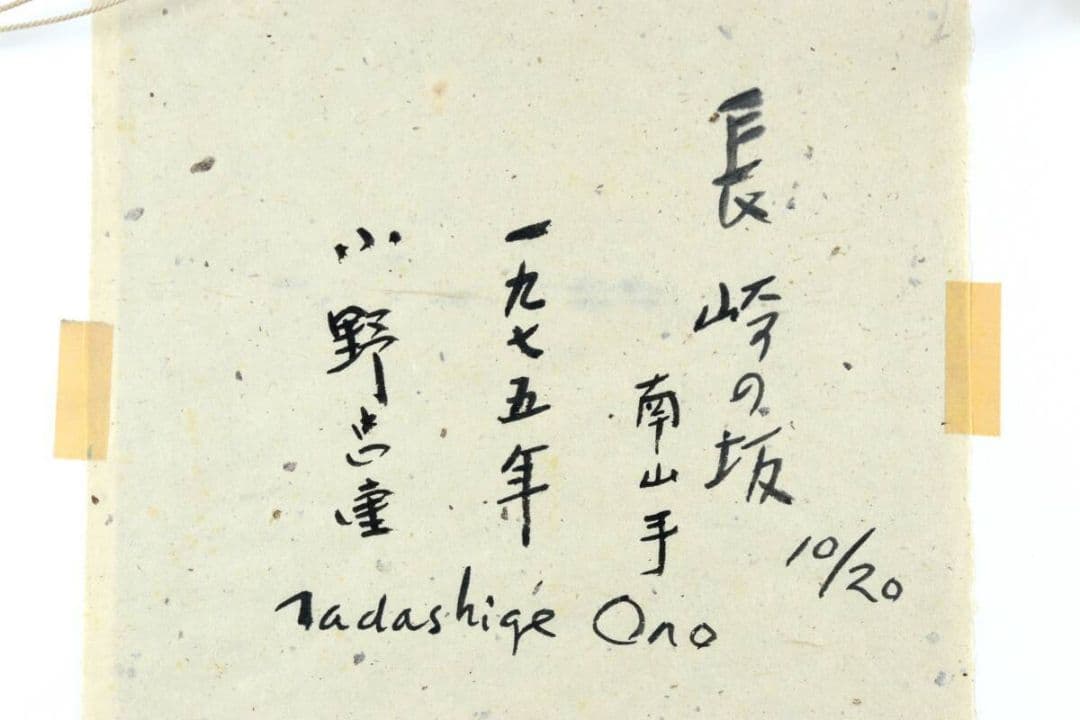 長崎の坂
南山手
10/20
一九七五年
小野忠重
Tadashige Ono